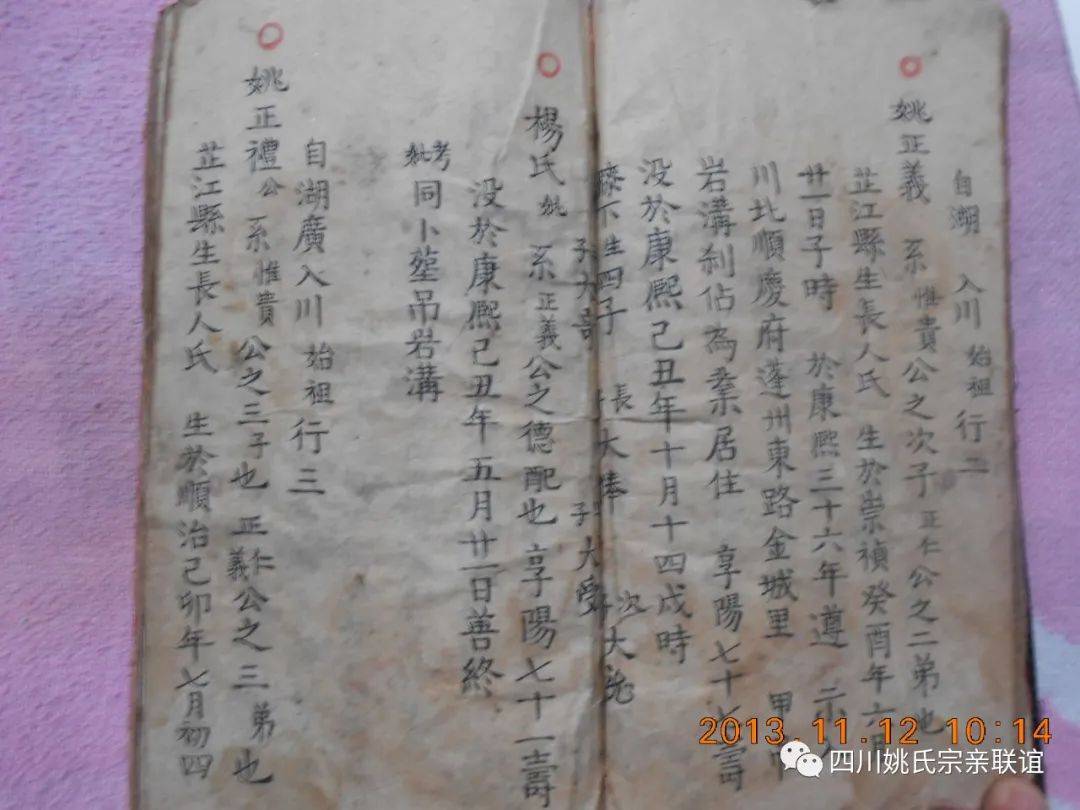 自湖 入川 始祖 行二
姚正義 系惟貴公之次子 正仁公之二弟也
芷江縣生長人氏 生於崇禎癸酉年六月
廿一日子時 於康熙三十六年遵 示入
川北順慶府蓬州東路金城里 甲
岩溝剎佔為業居住 享陽七十七壽
没於康熙己丑年十月十四戌時
膝下生四子 長大俸 次大
子大 子大受
楊氏妣 系正義公之德配也 享陽七十一壽
没於康熙己丑年五月廿一日善終
考妣同卜塋吊岩溝
自湖廣入川 始祖 行三
姚正禮公 系惟貴公之三子也 正仁義公之三弟也
芷江縣生長人氏 生於順治己卯年七月初四
2013.11.12 10:14
四川姚氏宗亲联谊